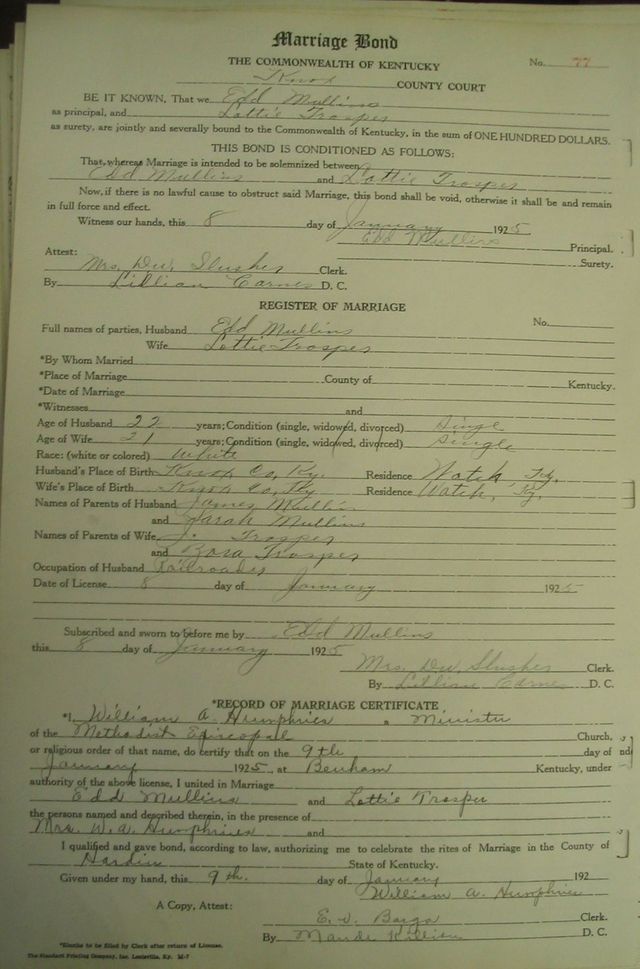 Marriage Bond
THE COMMONWEALTH OF KENTUCKY
No. 77
Knox COUNTY COURT
BE IT KNOWN, That we Edd Mullins
as principal, and Lottie Trosper
as surety, are jointly and severally bound to the Commonwealth of Kentucky, in the sum of ONE HUNDRED DOLLARS.
THIS BOND IS CONDITIONED AS FOLLOWS:
That, whereas Marriage is intended to be solemnized between
Edd Mullins and Lottie Trosper
Now, if there is no lawful cause to obstruct said Marriage, this bond shall be void, otherwise it shall be and remain
in full force and effect.
Witness our hands, this 8 day of January 1925
Edd Mullins Principal.
Surety.
Attest:
Mrs. Slusher Clerk.
By Lillian Carnes D. C.
REGISTER OF MARRIAGE
No.
Full names of parties, Husband Edd Mullins
Wife Lottie Trosper
*By Whom Married
*Place of Marriage County of Kentucky.
*Date of Marriage
*Witnesses and
Age of Husband 22 years; Condition (single, widowed, divorced) Single
Age of Wife 21 years; Condition (single, widowed, divorced) Single
Race: (white or colored) White
Husband's Place of Birth Knox Co, Ky. Residence Watch Ky.
Wife's Place of Birth Knox Co, Ky Residence Watch, Ky.
Names of Parents of Husband James Mullin
and Sarah Mullins
Names of Parents of Wife J. Trosper
and Trosper
Occupation of Husband Railroader
Date of License 8 day of January 1925
Subscribed and sworn to before me by Edd Mullins
this 8 day of January 1925
Mrs. Slusher Clerk.
By Lillian Carnes D. C.
*RECORD OF MARRIAGE CERTIFICATE
*I, William A. Humphries a Minister
of the Methodist Episcopal Church,
or religious order of that name, do certify that on the 9th day of
January 1925, at Benham Kentucky, under
authority of the above license, I united in Marriage
Edd Mullins and Lottie Trosper
the persons named and described therein, in the presence of
Mrs. W. A. Humphries and
I qualified and gave bond, according to law, authorizing me to celebrate the rites of Marriage in the County of
Hardin State of Kentucky.
Given under my hand, this 9th. day of January 192
William A. Humphries
A Copy, Attest:
Clerk.
By Maude D. C.
*Blanks to be filled by Clerk after return of License.
The Standard Printing Company, Inc. Louisville, Ky.